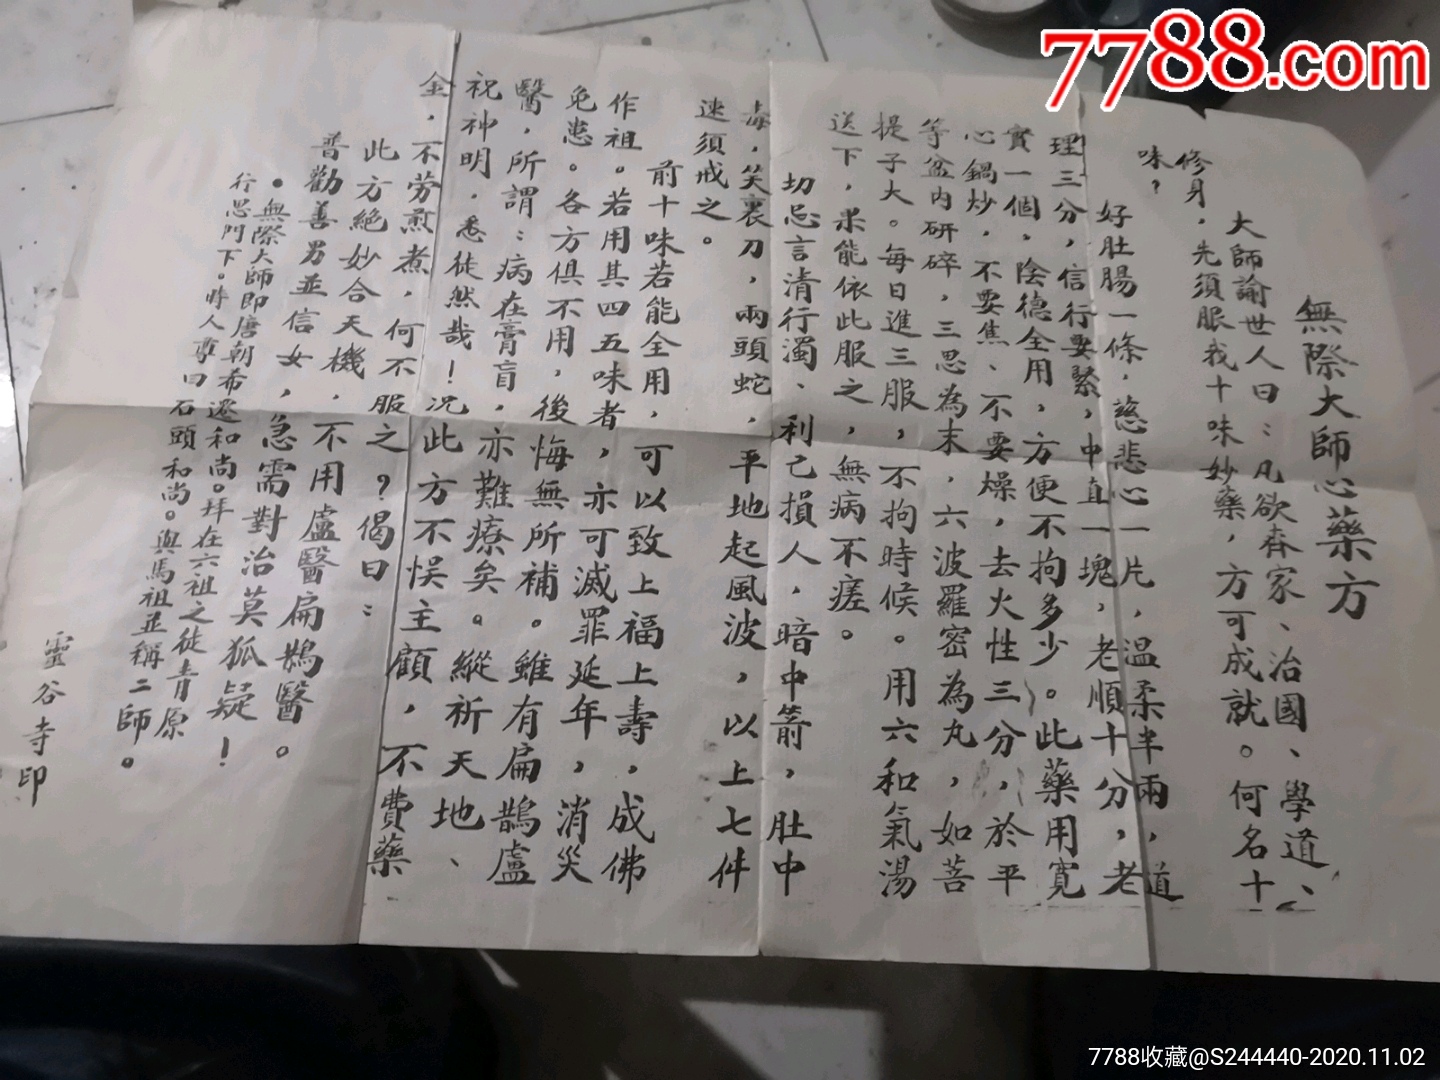 無際大師心藥方
大師諭世人曰：凡欲齊家、治國、學道、
修身，先須服我十味妙藥，方可成就。何名十
味？
好肚腸一條，慈悲心一片，温柔半兩，道
理三分，信行要緊，中直一塊，老順十分，老
實一個，陰德全用，方便不拘多少。此藥用寬
心鍋炒，不要焦、不要燥，去火性三分，於平
等盆内研碎，三思為末，六波羅密為丸，如菩
提子大。每日進三服，不拘時候。用六和氣湯
送下，果能依此服之，無病不瘥。
切忌言清行濁、利己損人，暗中箭，肚中
毒，笑裏刀，兩頭蛇，平地起風波，以上七件
速須戒之。
前十味若能全用，可以致上福上壽，成佛
作祖。若用其四五味者，亦可滅罪延年，消災
免患。各方俱不用，後悔無所補。雖有扁鵲盧
醫，所謂：病在膏肓，亦難療矣。縱祈天地、
祝神明，悉徒然哉！况此方不悮主顧，不費藥
金，不劳煎煮，何不服之？偈曰：
此方絶妙合天機，不用盧醫扁鵲醫。
普勸善男並信女，急需對治莫狐疑！
●無際大師即唐朝希遷和尚。拜在六祖之徒青原
行思門下。時人尊曰石頭和尚。與馬祖並稱二師。
靈谷寺印
7788.com
7788收藏@S244440-2020.11.02